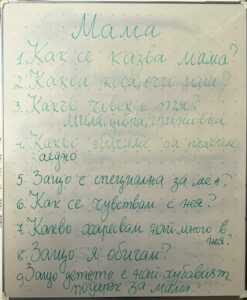 Мама
1. Как се казва мама?
2. Каква коса, очи има?
3. Какъв човек е тя?
мила, добра, грижовна
4. Какво обичаме да правим
заедно
5. Защо е специална за мен?
6. Как се чувствам с нея?
7. Какво харесвам най-много в
нея?
8. Защо я обичам?
9. Защо детето е най-хубавият
подарък за мама?